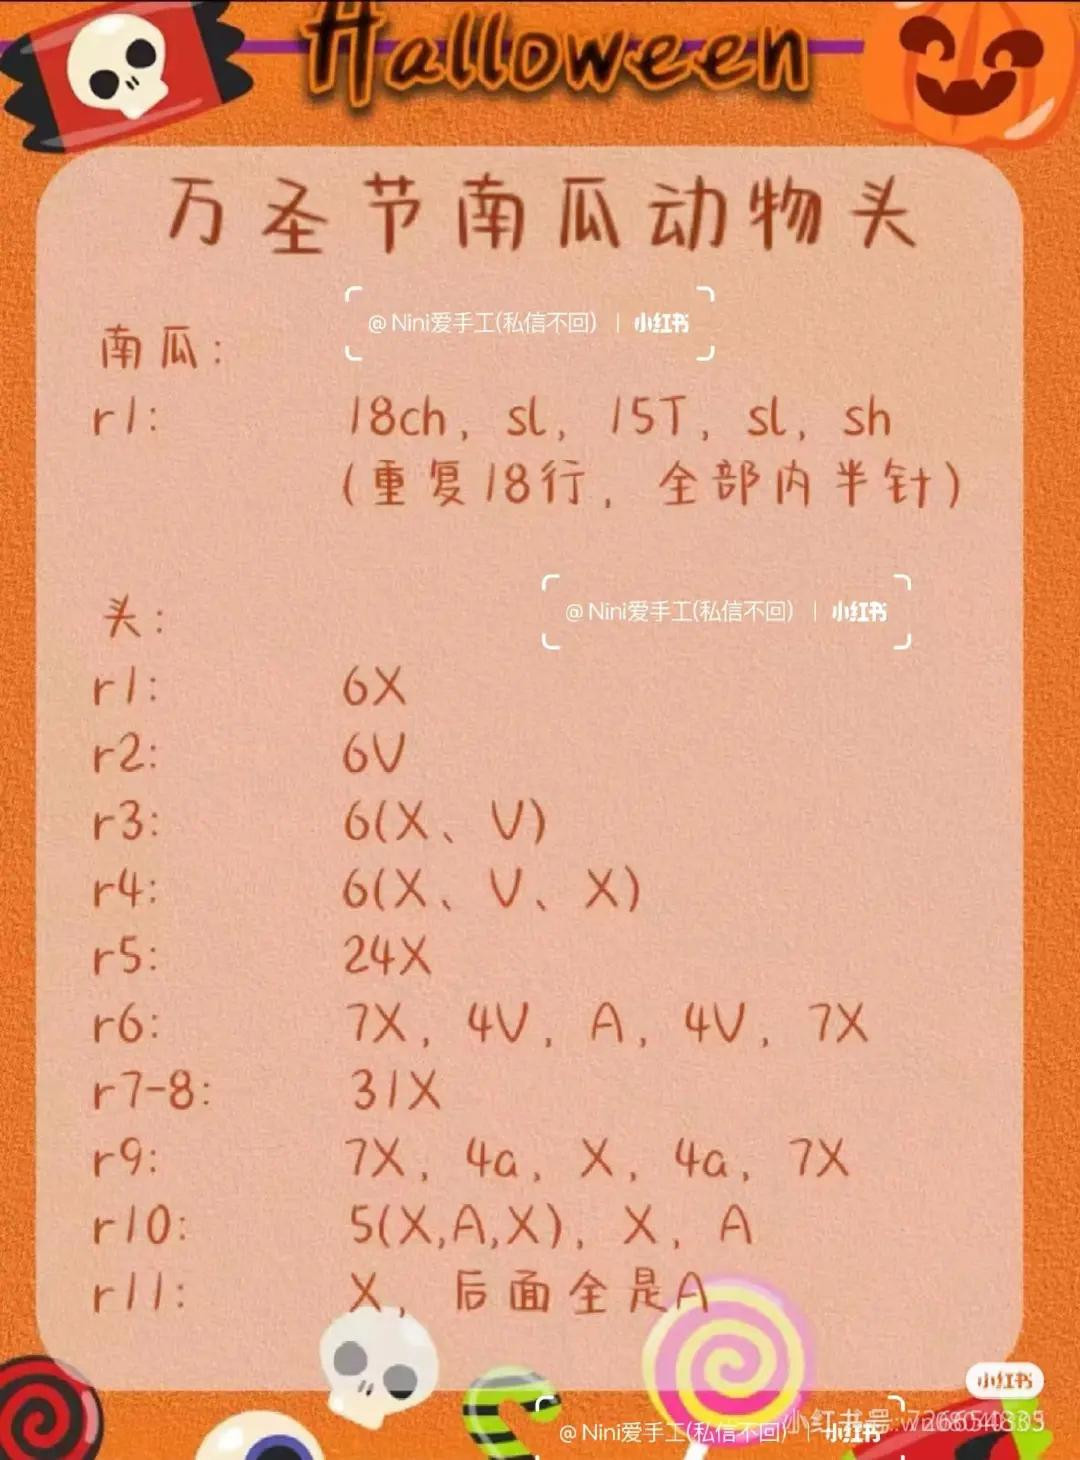 Halloween
万圣节南瓜动物头
@Nini爱手工(私信不回) | 小红书
南瓜：
r1: 18ch, sl, 15T, sl, sh
(重复18行, 全部内半针)
@Nini爱手工(私信不回) | 小红书
头：
r1: 6X
r2: 6V
r3: 6(X、V)
r4: 6(X、V、X)
r5: 24X
r6: 7X, 4V, A, 4V, 7X
r7-8: 31X
r9: 7X, 4a, X, 4a, 7X
r10: 5(X,A,X), X, A
r11: X, 后面全是A
小红书
@Nini爱手工(私信不回) | 小红书
小红书号: